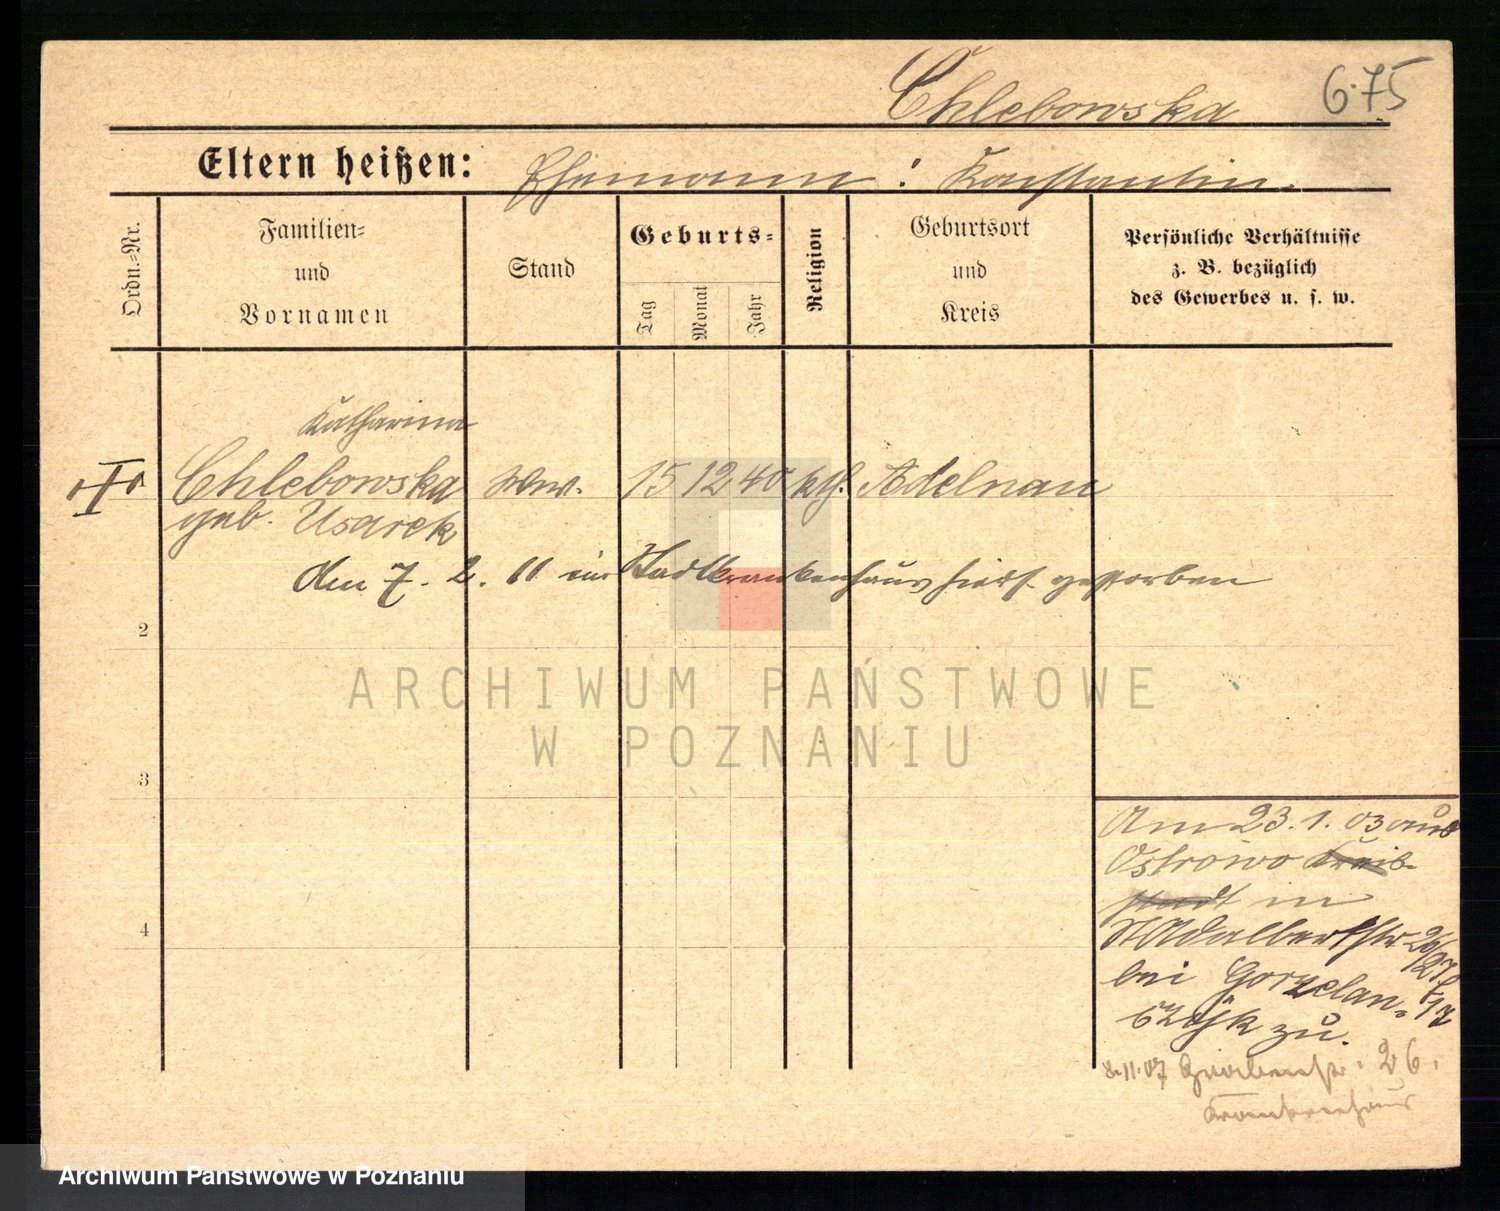 Chlebowska 675
Eltern heißen: Ehemann: Konstantin.
Ordn.-Nr.
Familien-
und
Vornamen
Stand
Geburts-
Tag
Monat
Jahr
Religion
Geburtsort
und
Kreis
Persönliche Verhältnisse
z. B. bezüglich
des Gewerbes u. s. w.
Katharina
Chlebowska Ww. 15 12 40 kth. Adelnau
geb. Usarek
den 7. 2. 11 im Stadtkrankenhaus hiers. gestorben
2
3
4
Am 23.1.03 aus
Ostrowo Kreis-
stadt in
St Adalbertstr 26/27
bei Gorzelan-
czyk zu.
8.11.07 Grabenstr. 26.
Krankenhaus
ARCHIWUM PAŃSTWOWE
W POZNANIU
Archiwum Państwowe w Poznaniu